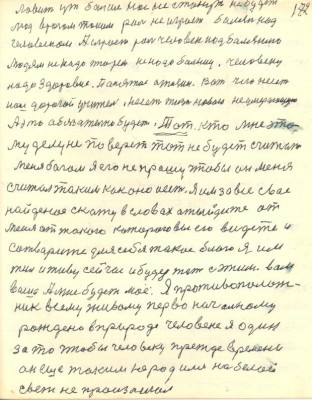 172
ловит ут больше ног не станут не будет
под врагом таким рал не играет болезнь над
человеком А играет рал человек над болезнью
людям некогда то рез не надо болезни, человеку
надо здоровие. Понятное это вам. Вот чего несет
нам дорогой учитель, несет тело новое неумирающее
А это обязательно будет. Тот, кто мне это
му делу не поверит тот не будет считать
меня богом я его не прошу чтобы он меня
считал таким как оно есть. Я им за все свое
найденое скажу в словах отойдите от
меня от такого которого вы его видете и
сотварите для себя такое благо я им
жил и живу сейчас и буду тот с этим. вам
ваше А мне будет моё. Я противополож-
ник всему живому перво начальному
рождено в природе человек я один
за то чтобы человеку прежде времени
он еще таким не родился на белой
свет не произошел